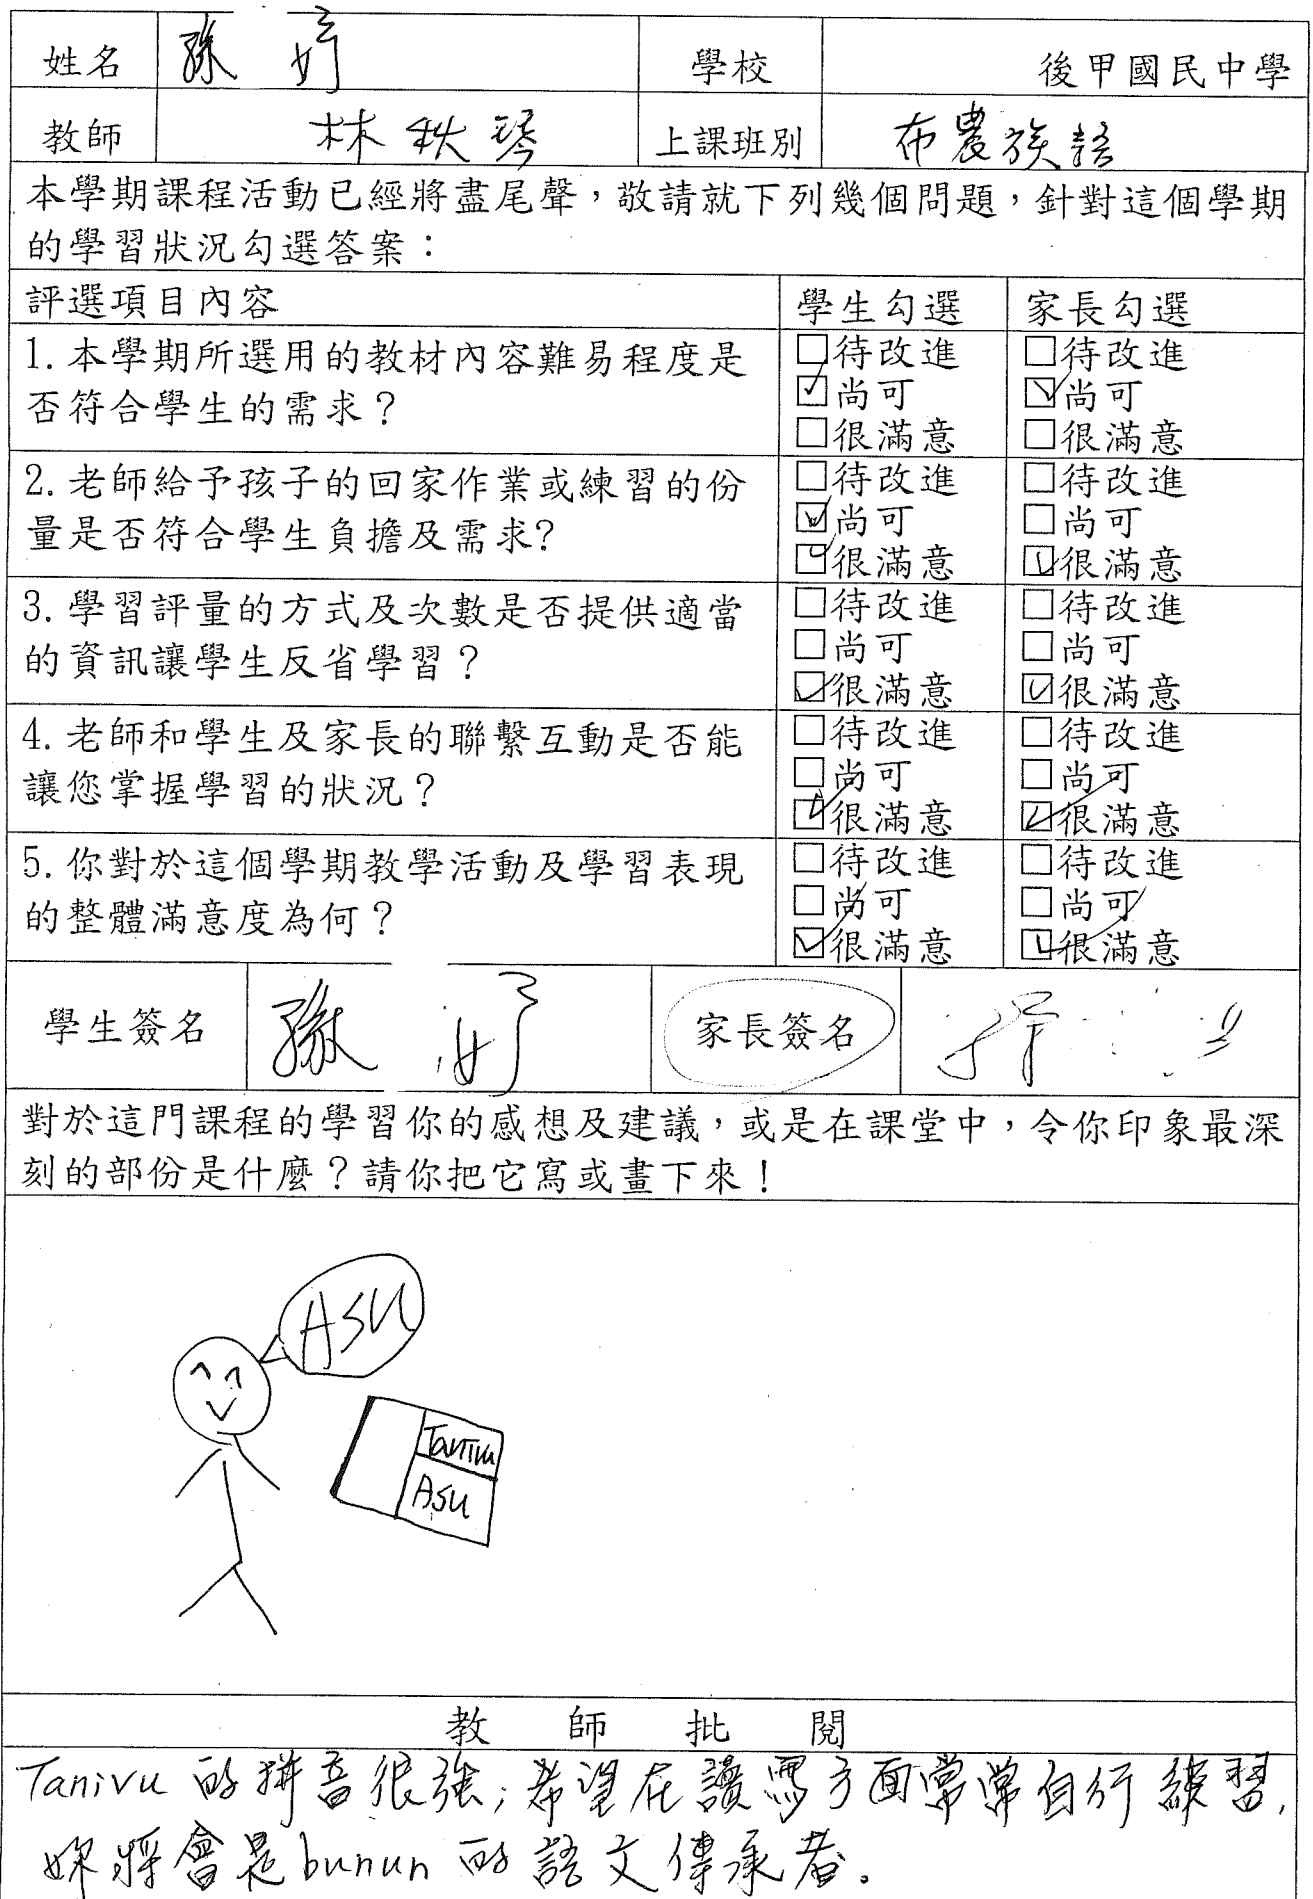 姓名 孫 婷 學校 後甲國民中學
教師 林秋琴 上課班別 布農族語
本學期課程活動已經將盡尾聲，敬請就下列幾個問題，針對這個學期
的學習狀況勾選答案：
評選項目內容 學生勾選 家長勾選
1. 本學期所選用的教材內容難易程度是
否符合學生的需求？
□待改進 □待改進
☑尚可 ☑尚可
□很滿意 □很滿意
2. 老師給予孩子的回家作業或練習的份
量是否符合學生負擔及需求?
□待改進 □待改進
☑尚可 □尚可
☑很滿意 ☑很滿意
3. 學習評量的方式及次數是否提供適當
的資訊讓學生反省學習？
□待改進 □待改進
□尚可 □尚可
☑很滿意 ☑很滿意
4. 老師和學生及家長的聯繫互動是否能
讓您掌握學習的狀況？
□待改進 □待改進
□尚可 □尚可
☑很滿意 ☑很滿意
5. 你對於這個學期教學活動及學習表現
的整體滿意度為何？
□待改進 □待改進
□尚可 □尚可
☑很滿意 ☑很滿意
學生簽名 孫 家長簽名
對於這門課程的學習你的感想及建議，或是在課堂中，令你印象最深
刻的部份是什麼？請你把它寫或畫下來！
ASU
Tanivu
ASU
教 師 批 閱
Tanivu 的拼音很強；希望在讀寫方面常常自行練習，
妳將會是bunun的語文傳承者。